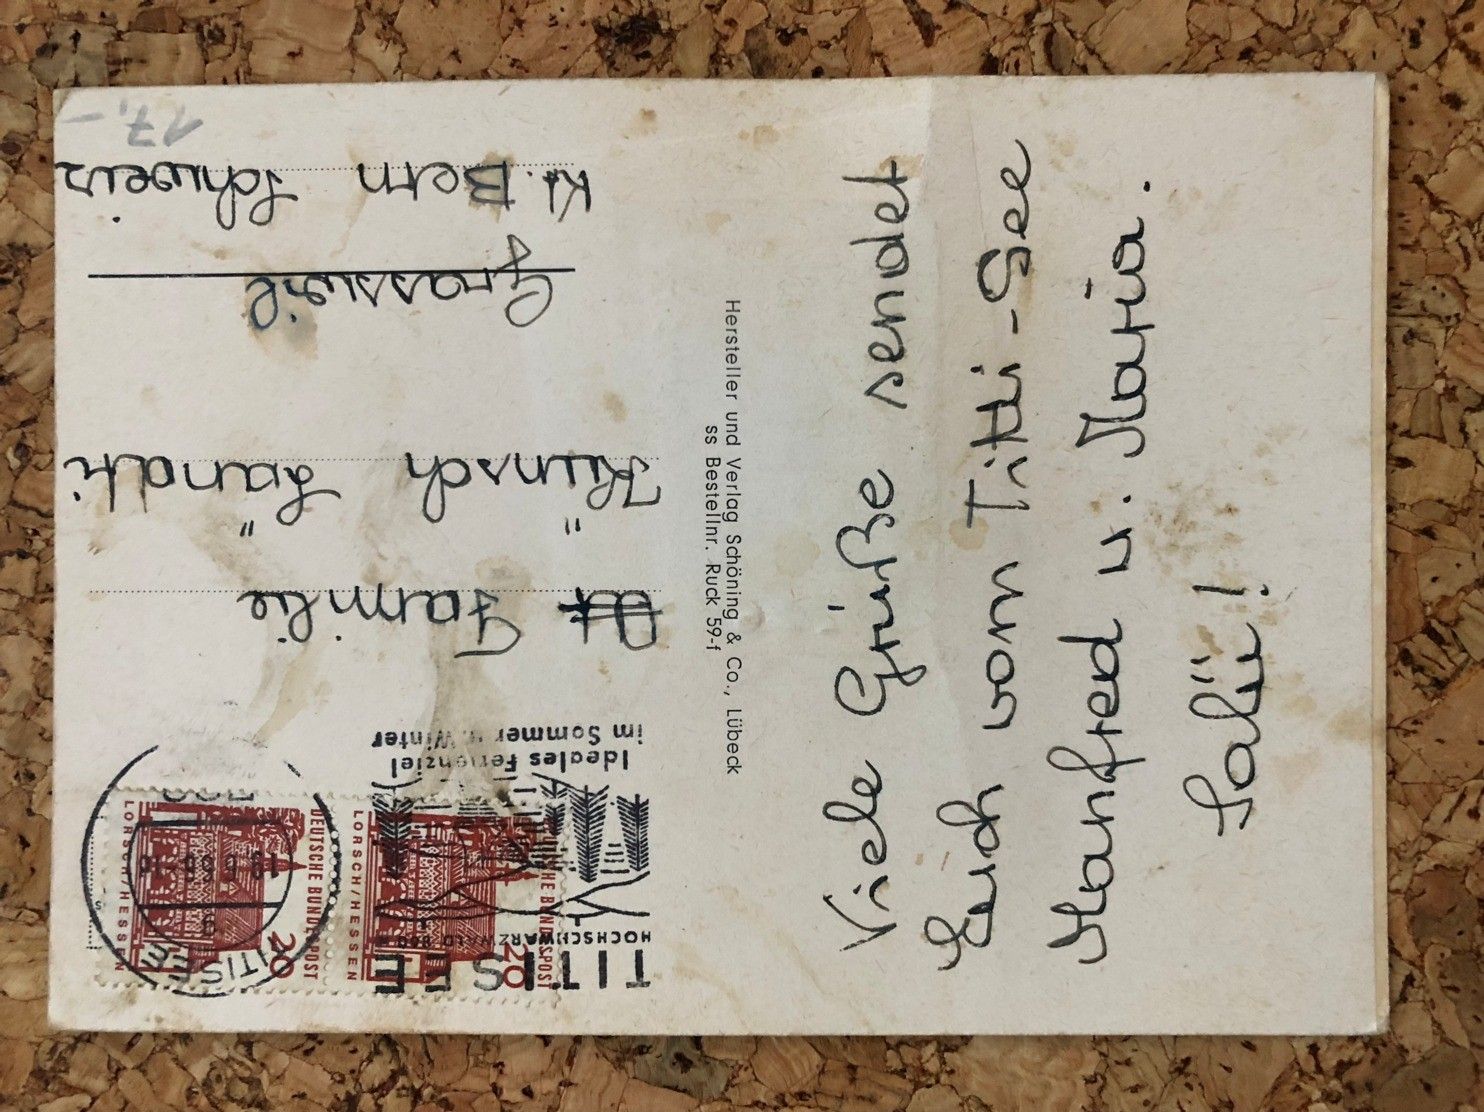 Viele Grüße sendet
Euch vom Titti-See
Manfred u. Maria.
Salü!
Hersteller und Verlag Schöning & Co., Lübeck
ss Bestellnr. Ruck 59-f
TITISEE
HOCHSCHWARZWALD
Ideales Ferienziel
im Sommer u. Winter
TITISEE
19.6.66-16
DEUTSCHE BUNDESPOST
20
LORSCH/HESSEN
DEUTSCHE BUNDESPOST
20
LORSCH/HESSEN
Familie
"Hünsch Ländti"
Grasswil
Kt. Bern Schweiz
17,-